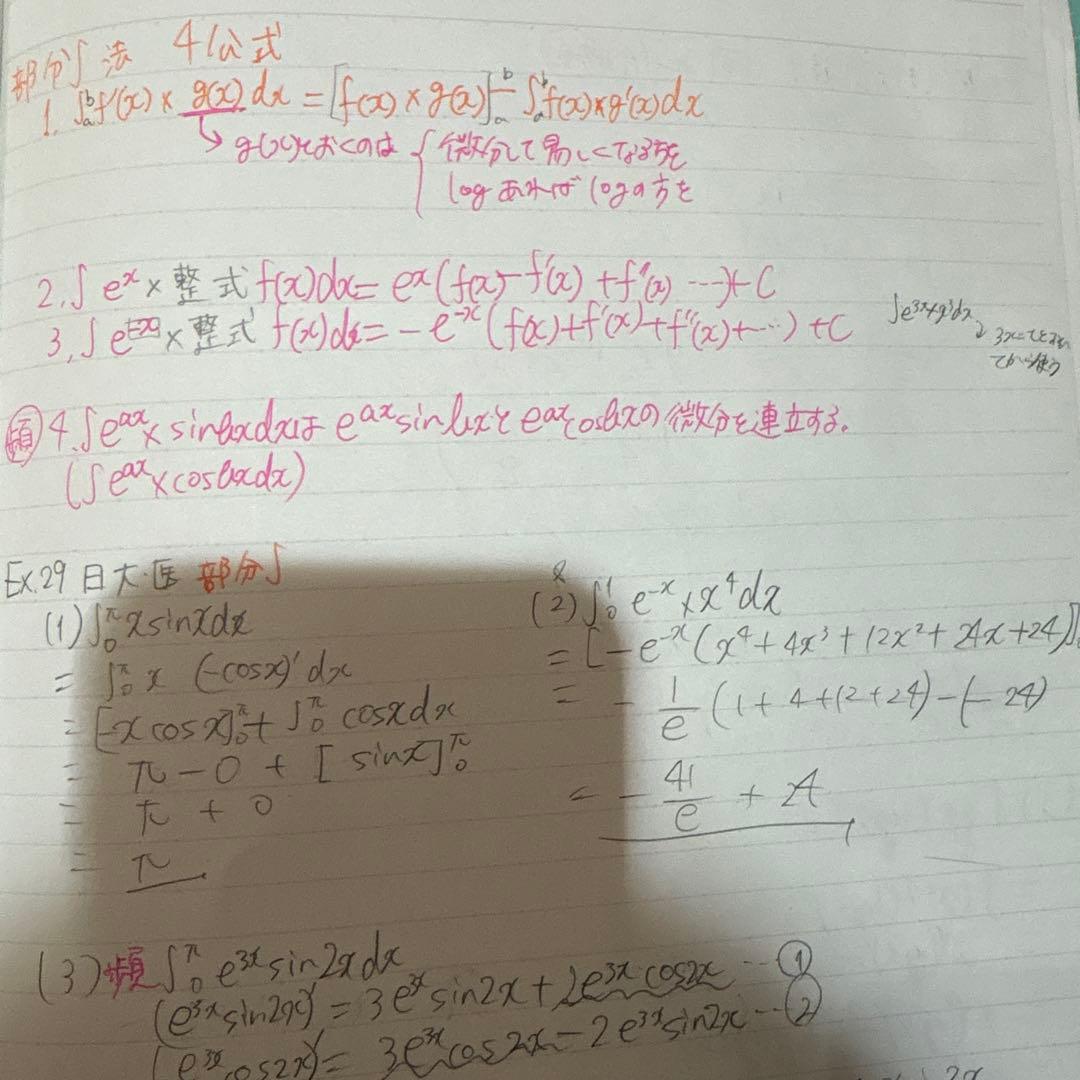 部分∫法 4公式
1. ∫ₐᵇf'(x)×g(x)dx=[f(x)×g(x)]ₐᵇ-∫ₐᵇf(x)×g'(x)dx
↳g(x)とおくのは{微分して易しくなる方を
logあればlogの方を
2. ∫eˣ×整式f(x)dx=eˣ(f(x)-f'(x)+f''(x)…)+C
3. ∫e⁻ˣ×整式f(x)dx=-e⁻ˣ(f(x)+f'(x)+f''(x)+…)+C
3x=tとおい
てから使う
頻 4. ∫eᵃˣ×sinbxdxは eᵃˣsinbxとeᵃˣcosbxの微分を連立する。
(∫eᵃˣ×cosbxdx)
Ex.29 日大・医 部分∫
(1)∫₀^π xsinxdx
=∫₀^π x(-cosx)'dx
=[-xcosx]₀^π+∫₀^π cosxdx
= π-0+[sinx]₀^π
= π+0
= π
(2)∫₀¹e⁻ˣ×x⁴dx
=[-e⁻ˣ(x⁴+4x³+12x²+24x+24)]
= -1/e(1+4+12+24)-(-24)
= -41/e+24
(3)頻∫₀^π e³ˣsin2xdx
(e³ˣsin2x)'=3e³ˣsin2x+2e³ˣcos2x…①
(e³ˣcos2x)'=3e³ˣcos2x-2e³ˣsin2x…②